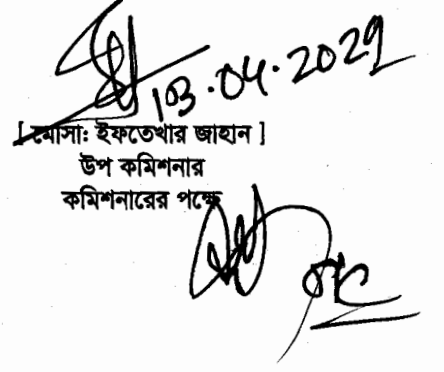 03.04.2021
[ মোসা: ইফতেখার জাহান ]
উপ কমিশনার
কমিশনারের পক্ষে